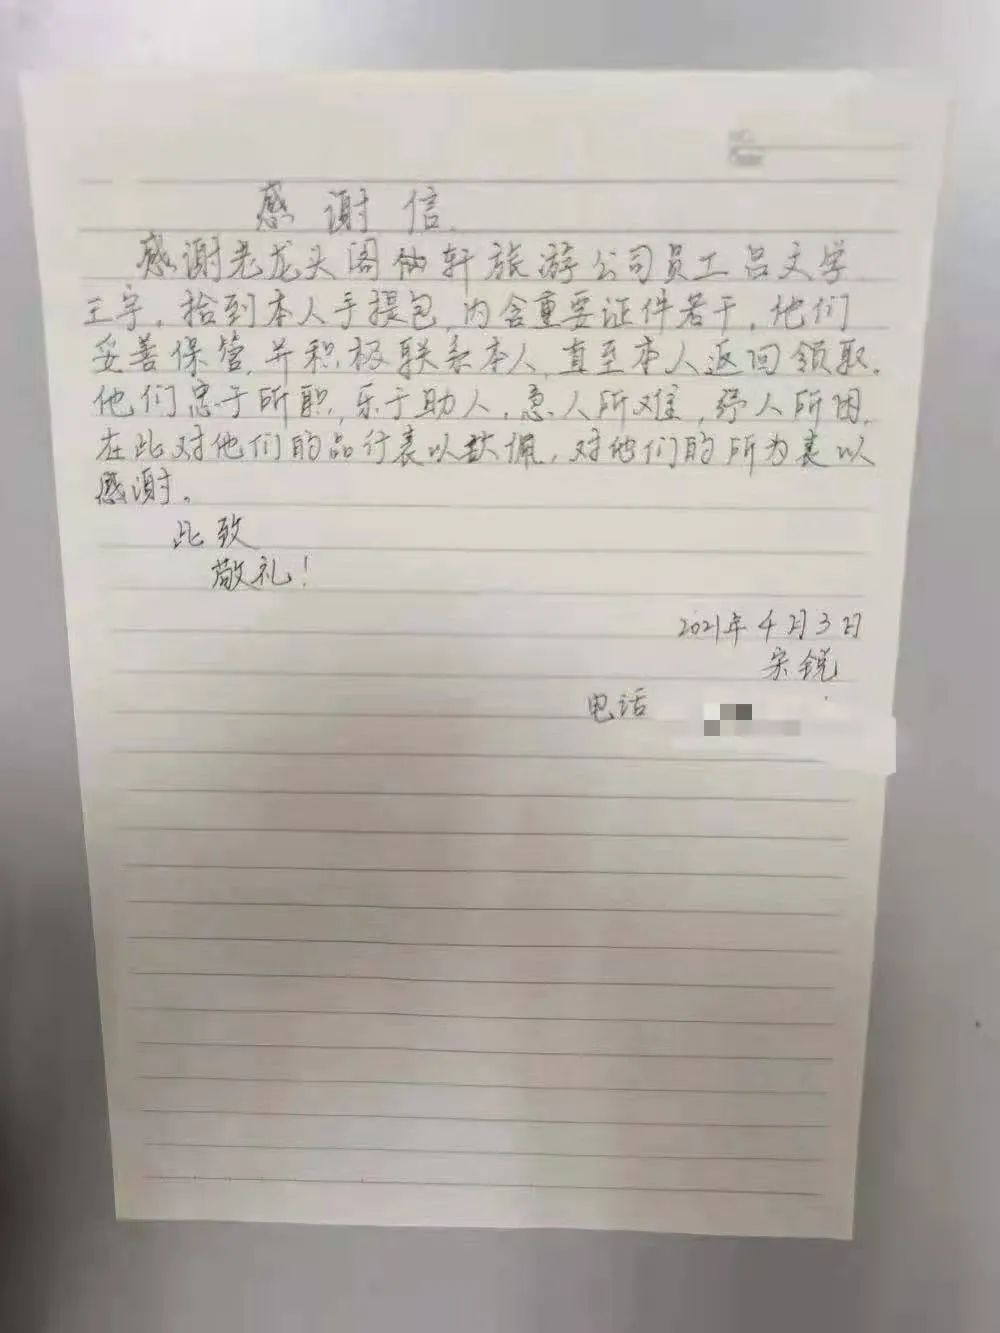 感谢信
感谢老龙头阁仙轩旅游公司员工吕文学
王宇。拾到本人手提包,内含重要证件若干,他们
妥善保管,并积极联系本人,直至本人返回领取。
他们忠于所职,乐于助人,急人所难,纾人所困,
在此对他们的品行表以钦佩,对他们的所为表以
感谢。
此致
敬礼!
2021年4月3日
宋锐
电话